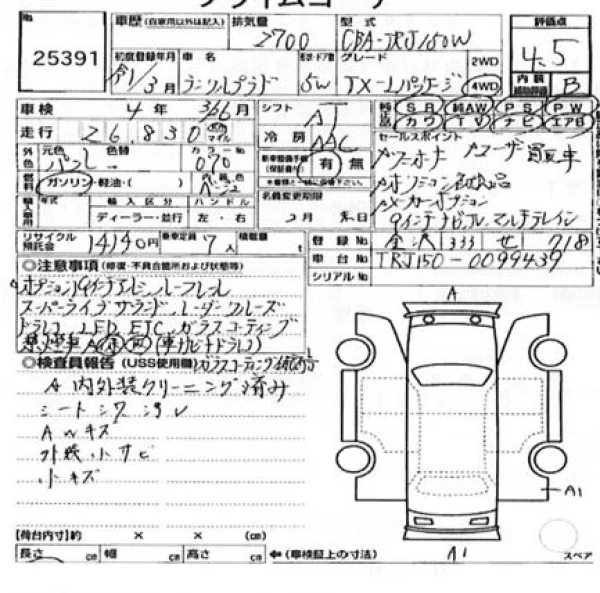 プライムコーナー
25391
車歴 (自家用以外は記入)
排気量 2700
型式 CBA-TRJ150W
評価点 4.5
内装補助評価 B
初度登録年月 1/3月
車名 ランクルプラド
5W
グレード TX-Lパッケージ
2WD
4WD
車検 4年 3/6月
シフト AT
SR 純AW PS PW
カワ TV ナビ エアB
走行 26,830
冷房 AAC
セールスポイント
ワンオーナー ユーザー買取車
外色 元色 パール 色替
カラーNo 070
新車整備手帳(保証書付) 有・無
燃料 ガソリン・軽油・( )
内装色 ベージュ
名義変更期限
月 日
輸入車用 年式 輸入区分 ハンドル
ディーラー・並行 左・右
9インチナビ フル マルチテレイン
リサイクル預託金 14140円
乗車定員 7人
積載量 t
登録No 金沢 333 せ 718
車台No TRJ150-0099439
シリアルNo
◎注意事項 (修復・不具合箇所および状態等)
オプション19インチアルミ ルーフレール
スーパーライブサウンド レーダークルーズ
ドラレコ LED ETC ガラスコーティング
◎検査員報告 (USS使用欄)
A 内外装クリーニング済み
シートシワ汚レ
AWキズ
外装小サビ
小キズ
【荷台内寸】約 × × (cm)
長さ cm 幅 cm 高さ cm
←(車検証上の寸法)
A
A1
A1
スペア